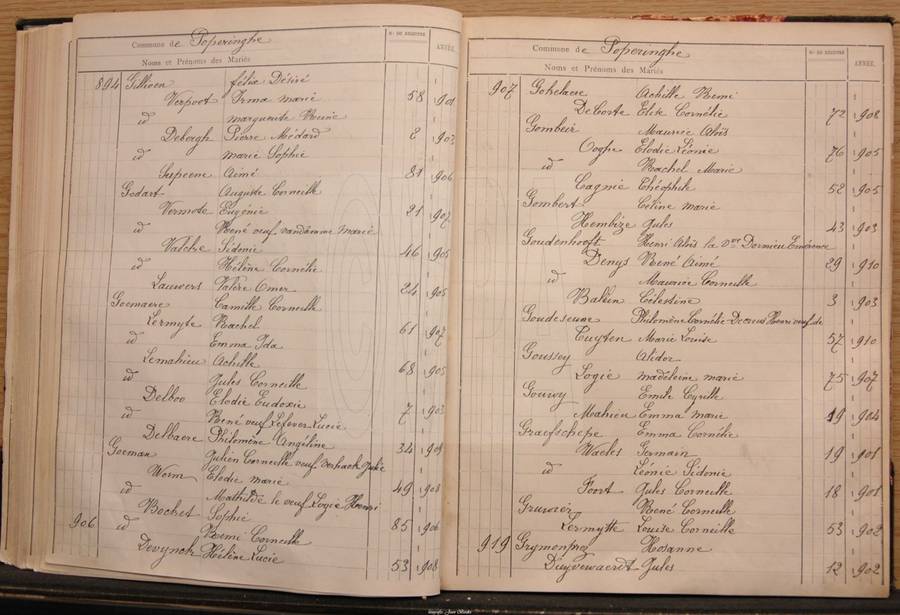 Commune de Poperinghe
Noms et Prénoms des Mariés
Nº DE REGISTRE
ANNÉE.
894 Gillioen Félix Désiré
Verpoot Irma Marie 58 901
id Marguerite Reine
Debergh Pierre Médard 2 903
id Marie Sophie
Supeene Aimé 81 906
Godart Auguste Corneille
Vermote Eugénie 21 907
id René veuf Vandamme Marie
Valcke Sidonie 46 905
id Hélène Cornélie
Lauwers Valère Omer 24 905
Goemaere Camille Corneille
Lermyte Rachel 61 907
id Emma Ida
Lemahieu Achille 68 905
id Jules Corneille
Delboo Elodie Eudoxie 7 903
id René veuf Lefever Lucie
Delbaere Philomène Angéline 34 908
Goeman Julien Corneille veuf Julie
Worm Elodie Marie 49 901
id Mathilde le veuf Logie Henri
Bochet Sophie 85 906
906 id Remi Corneille
Devynck Hélène Lucie 53 908
Commune de Poperinghe
Noms et Prénoms des Mariés
Nº DE REGISTRE
ANNÉE.
907 Gohelaere Achille Remi
DeCorte Elise Cornélie 72 908
Gombeir Maurice Aloïs
Ooghe Elodie Léonie 76 905
id Rachel Marie
Cagnie Théophile 52 905
Gombert Céline Marie
Hembize Jules 43 903
Goudenhooft Henri Aloïs la Dce Dornieu Emérence
Denys René Aimé 29 910
id Maurice Corneille
Balein Célestine 3 903
Goudeseune Philomène Cornélie Henri veuf de
Tuyten Marie Louise 57 910
Goussey Alidor
Logie Madeleine Marie 75 907
Gouwy Emile Cyrille
Mahieu Emma Marie 19 904
Graefschepe Emma Cornélie
Waeles Germain 19 901
id Léonie Sidonie
Foort Jules Corneille 18 901
Gruwier René Corneille
Lermytte Louise Corneille 53 902
919 Grymonprez Hosanne
Duyvewaerdt Jules 12 902